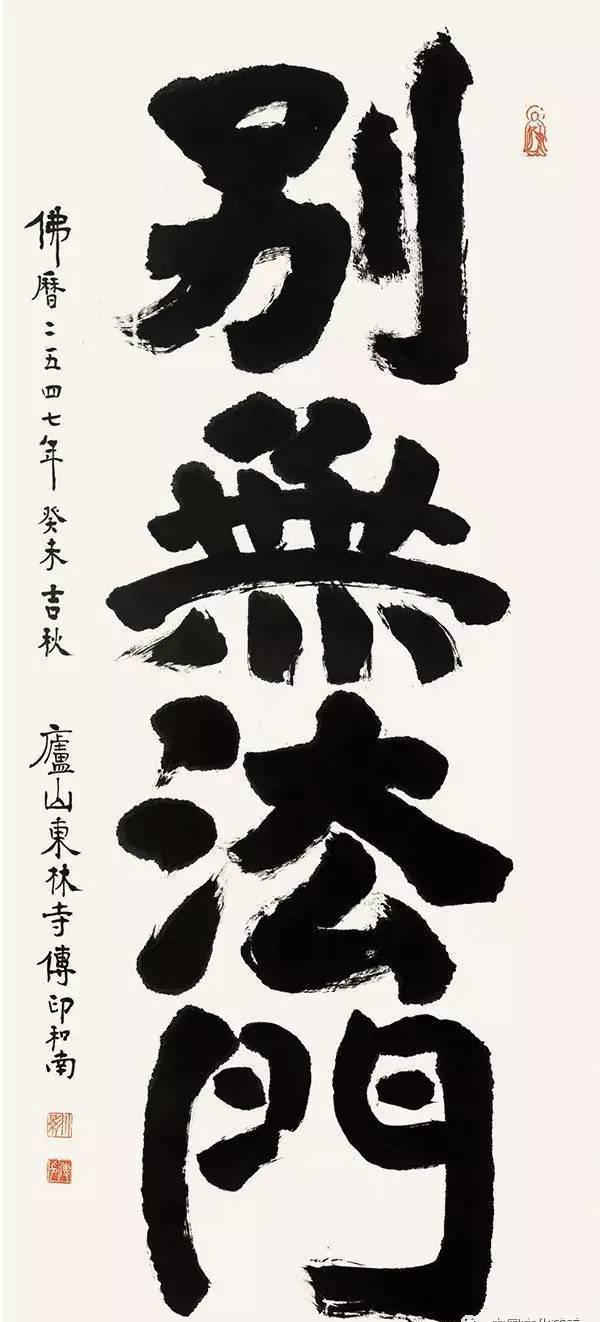 別無法門
佛曆二五四七年 癸未吉秋 廬山東林寺傳印和南